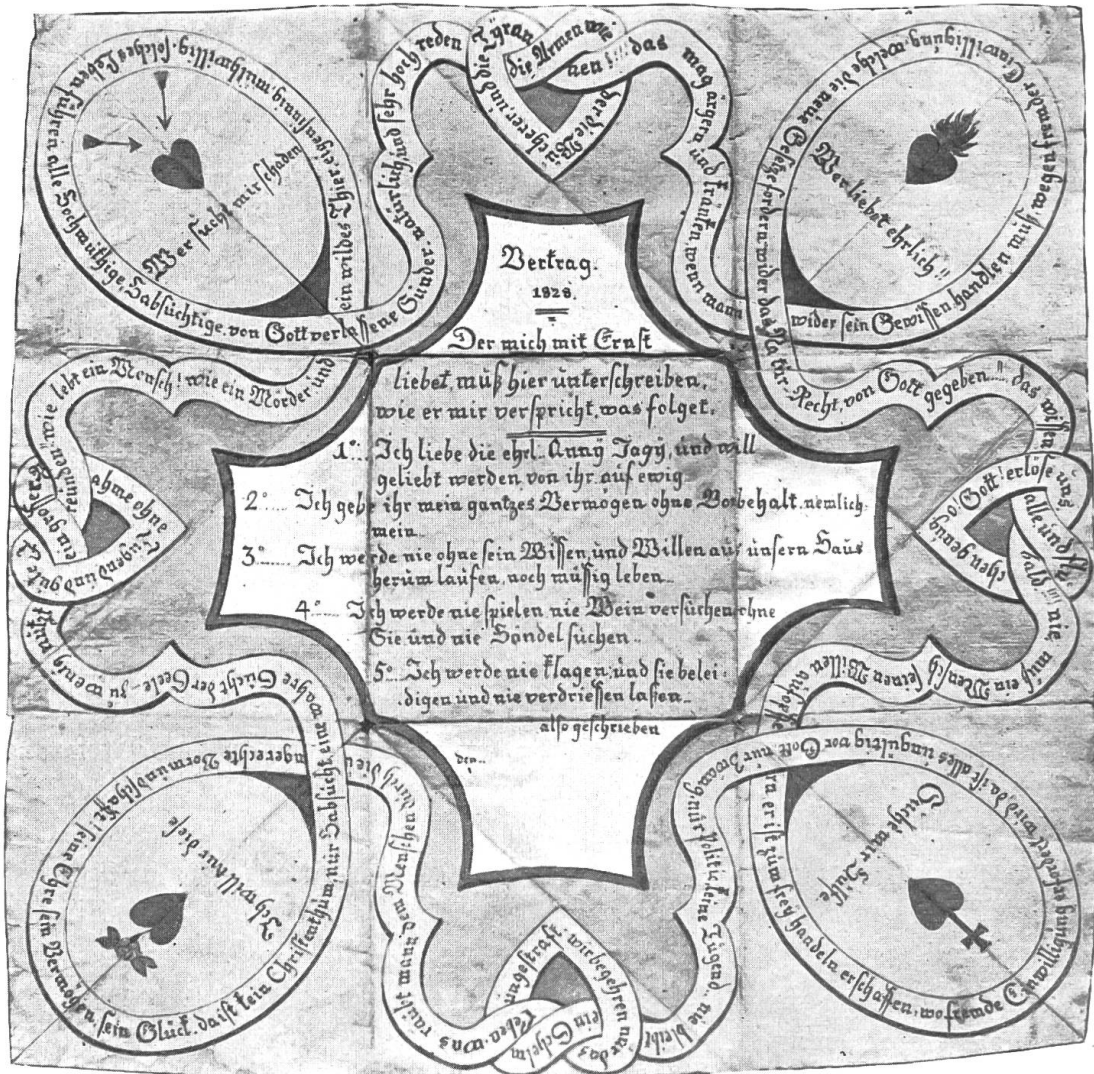 Vertrag.
1828.
Der mich mit Ernst
liebet, muß hier unterschreiben,
wie er mir verspricht, was folget.
1° Ich liebe die ehrl. Anny Jagy, und will
geliebt werden von ihr auf ewig
2° Ich gebe ihr mein gantzes Vermögen ohne Vorbehalt. nemlich
mein
3° Ich werde nie ohne sein Wissen, und Willen aus unsern Haus
herum laufen, noch müssig leben
4° Ich werde nie spielen nie Wein versuchen ohne
Sie und nie Händel suchen
5° Ich werde nie klagen, und sie belei-
digen und nie verdriessen laßen
also geschrieben
den
Wer sucht mir schaden
Wer liebet ehrlich
Ich will nur diese
Suche mir Hülfe
wie lebt ein Mensch! wie ein Mörder und
ein wildes Thier, eigensinnig, muthwillig, solches Leben führen alle Hochmuthige, Habsüchtige, von Gott verlassene Sünder: natürlich, und sehr hoch reden
die Wücherer, und die Tyran
nen!!! das mag ärgern und kränken, wenn mann
wider sein Gewissen handlen muß, wegen fremder Einwilligung, welche die neue Gesetze fordern, wider das Natur-Recht, von Gott gegeben!!! das wissen
alle und
o! Gott! erlöse uns
bald!!! nie muß ein Mensch seinen Willen aufopfern er ist zum frey handeln erschaffen, wo fremde Einwilligung gefordert wird, da ist alles ungültig vor Gott nur Zwang, nur Politic, keine Tugend, nie bleibt
ein Schelm
ungestraft. wir begehren nur das
Leben. was raubt mann dem Menschen durch die ungerechte Vormundschaft! seine Ehre sein Vermögen, sein Glück, da ist kein Christenthum, nur Habsücht, eine wahre Sücht der Seele- zu wenig nützt
ahme ohne
Tugend und gute